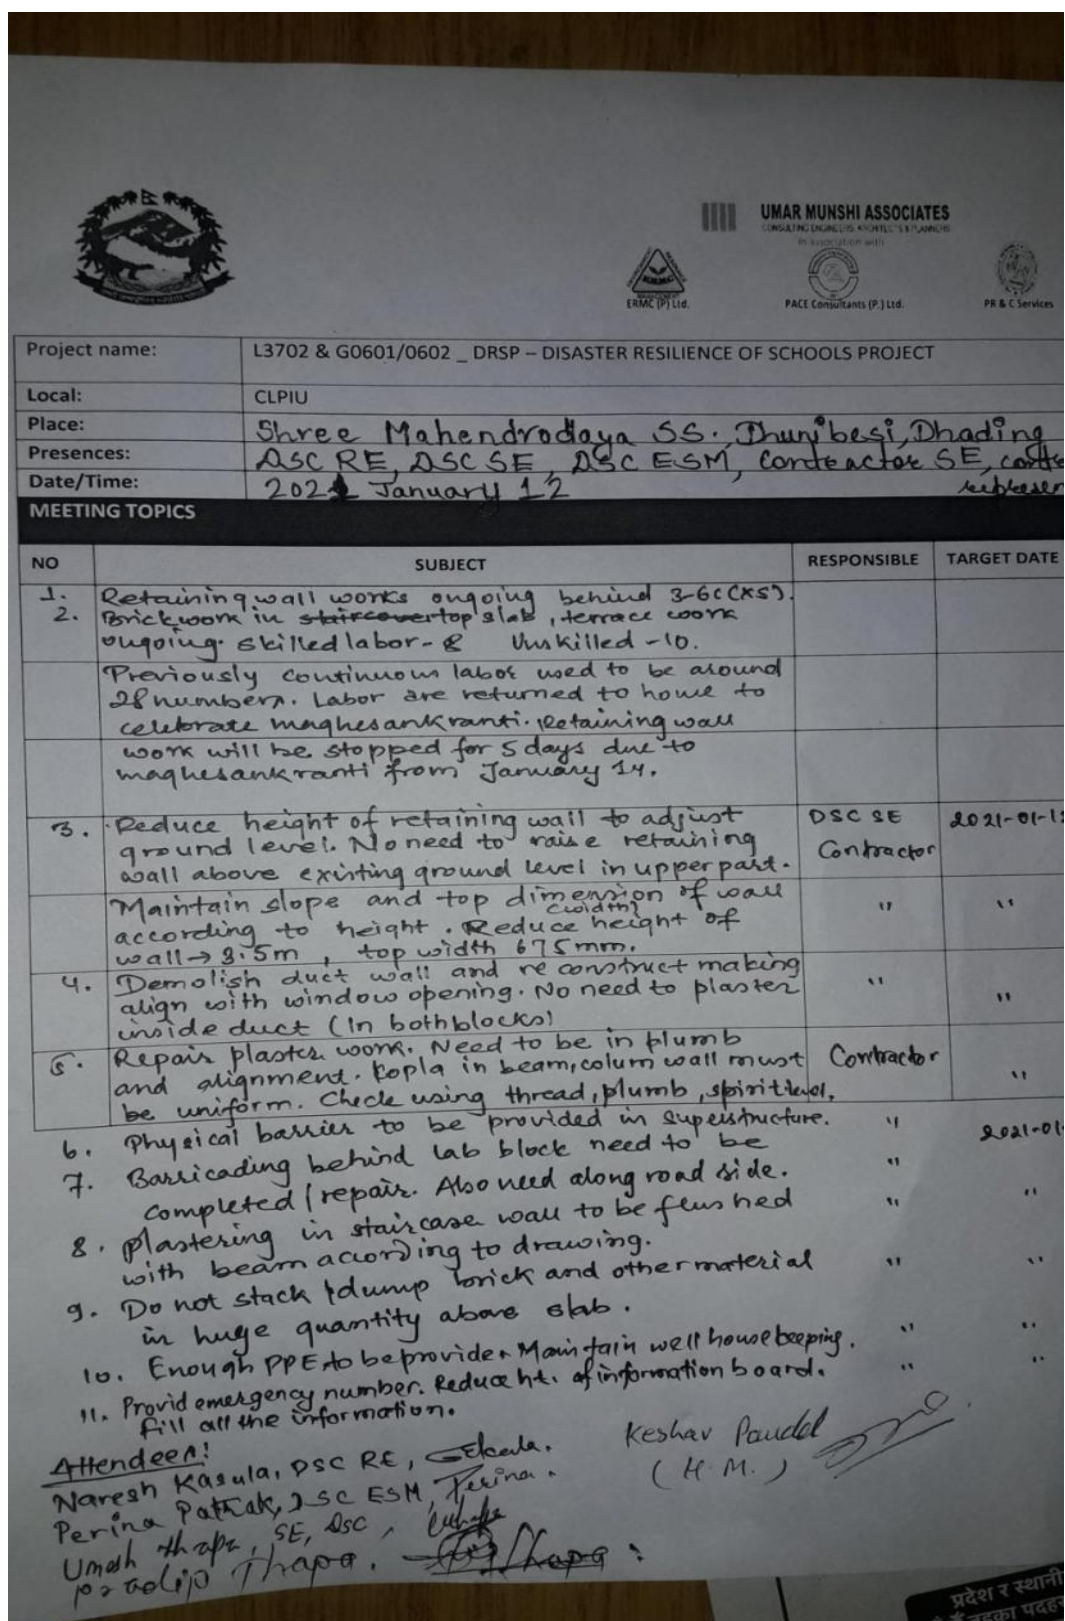 UMAR MUNSHI ASSOCIATES
CONSULTING ENGINEERS ARCHITECTS & PLANNERS
In association with
ERMC (P) Ltd.
PACE Consultants (P.) Ltd.
PR & C Services
Project name: L3702 & G0601/0602 _ DRSP – DISASTER RESILIENCE OF SCHOOLS PROJECT
Local: CLPIU
Place: Shree Mahendrodaya SS. Dhunibesi, Dhading
Presences: DSC RE, DSC SE, DSC ESM, Contractor SE, contr
represen
Date/Time: 2021 January 12
MEETING TOPICS
NO SUBJECT RESPONSIBLE TARGET DATE
1. Retaining wall works ongoing behind 3-6c(XS).
2. Brickwork in staircover top slab, terrace work
ongoing. skilled labor - 8 Unskilled - 10.
Previously continuous labor used to be around
28 numbers. Labor are returned to home to
celebrate maghesankranti. Retaining wall
work will be stopped for 5 days due to
maghesankranti from January 14.
3. Reduce height of retaining wall to adjust DSC SE 2021-01-1
ground level. No need to raise retaining Contractor
wall above existing ground level in upper part.
Maintain slope and top dimension of wall " "
(width)
according to height. Reduce height of
wall → 3.5m, top width 675mm.
4. Demolish duct wall and re construct making " "
align with window opening. No need to plaster
inside duct (In both blocks)
5. Repair plaster work. Need to be in plumb Contractor "
and alignment. Kopla in beam, colum wall must
be uniform. Check using thread, plumb, spirit level.
6. Physical barrier to be provided in superstructure. " 2021-01-
7. Barricading behind lab block need to be "
completed / repair. Also need along road side. "
8. Plastering in staircase wall to be flushed "
with beam according to drawing.
9. Do not stack / dump brick and other material " "
in huge quantity above slab.
10. Enough PPE to be provide. Maintain well housekeeping. " "
11. Provid emergency number. Reduce ht. of information board. " "
fill all the information.
Attendees:
Naresh Kasula, DSC RE,
Perina Pathak, DSC ESM, Perina.
Umesh thapa, SE, DSC,
pradip Thapa. Thapa
Keshav Paudel
(H.M.)
प्रदेश र स्थानी